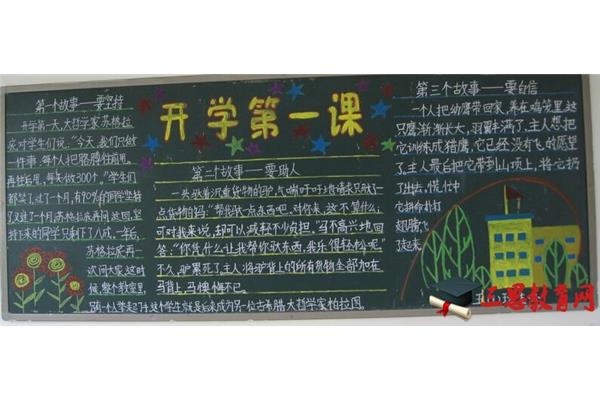 开学第一课
第一个故事——要坚持
开学第一天,大哲学家苏格拉
底对学生们说:“今天,我们只做
一件事,每个人把胳膊往前甩,
再往后甩,每天做300个。”学生们
都笑了,过了一个月,有90%的同学坚持
了,又过了一个月,苏格拉底再问这回,坚
持下来的同学只剩下了八成,一年后,
苏格拉底再一
次问大家,这时
候,整个教室里,
只有一个人举起了手,这个学生就是后来成为另一位古希腊大哲学家柏拉图。
第二个故事——要助人
一头驮着沉重货物的驴,气喘吁吁请求只驮了一
点货物的马:“帮我驮一点东西吧,对你来,这不算什么;
可对我来说,却可以减轻不少负担。”马不高兴地回
答:“你凭什么让我帮你驮东西,我乐得轻松呢。”
不久,驴累死了,主人将驴背上的所有货物全部加在
马背上,马懊悔不已。
第三个故事——要自信
一个人把幼鹰带回家,养在鸡笼里,这
只鹰渐渐长大,羽翼丰满了,主人想把
它训练成猎鹰,它已经没有飞的愿望
了,主人最后把它带到山顶上,将它扔
了出去,慌忙中
它拼命扑打
翅膀飞
了起来
上思教育网